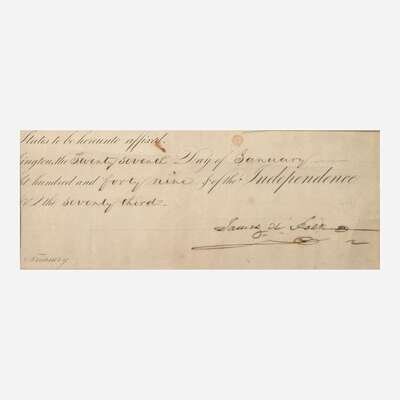 States to be hereunto affixed.
ington, the Twenty seventh Day of January
t hundred and forty nine & of the Independence
the seventy third.
James K Polk
Treasury